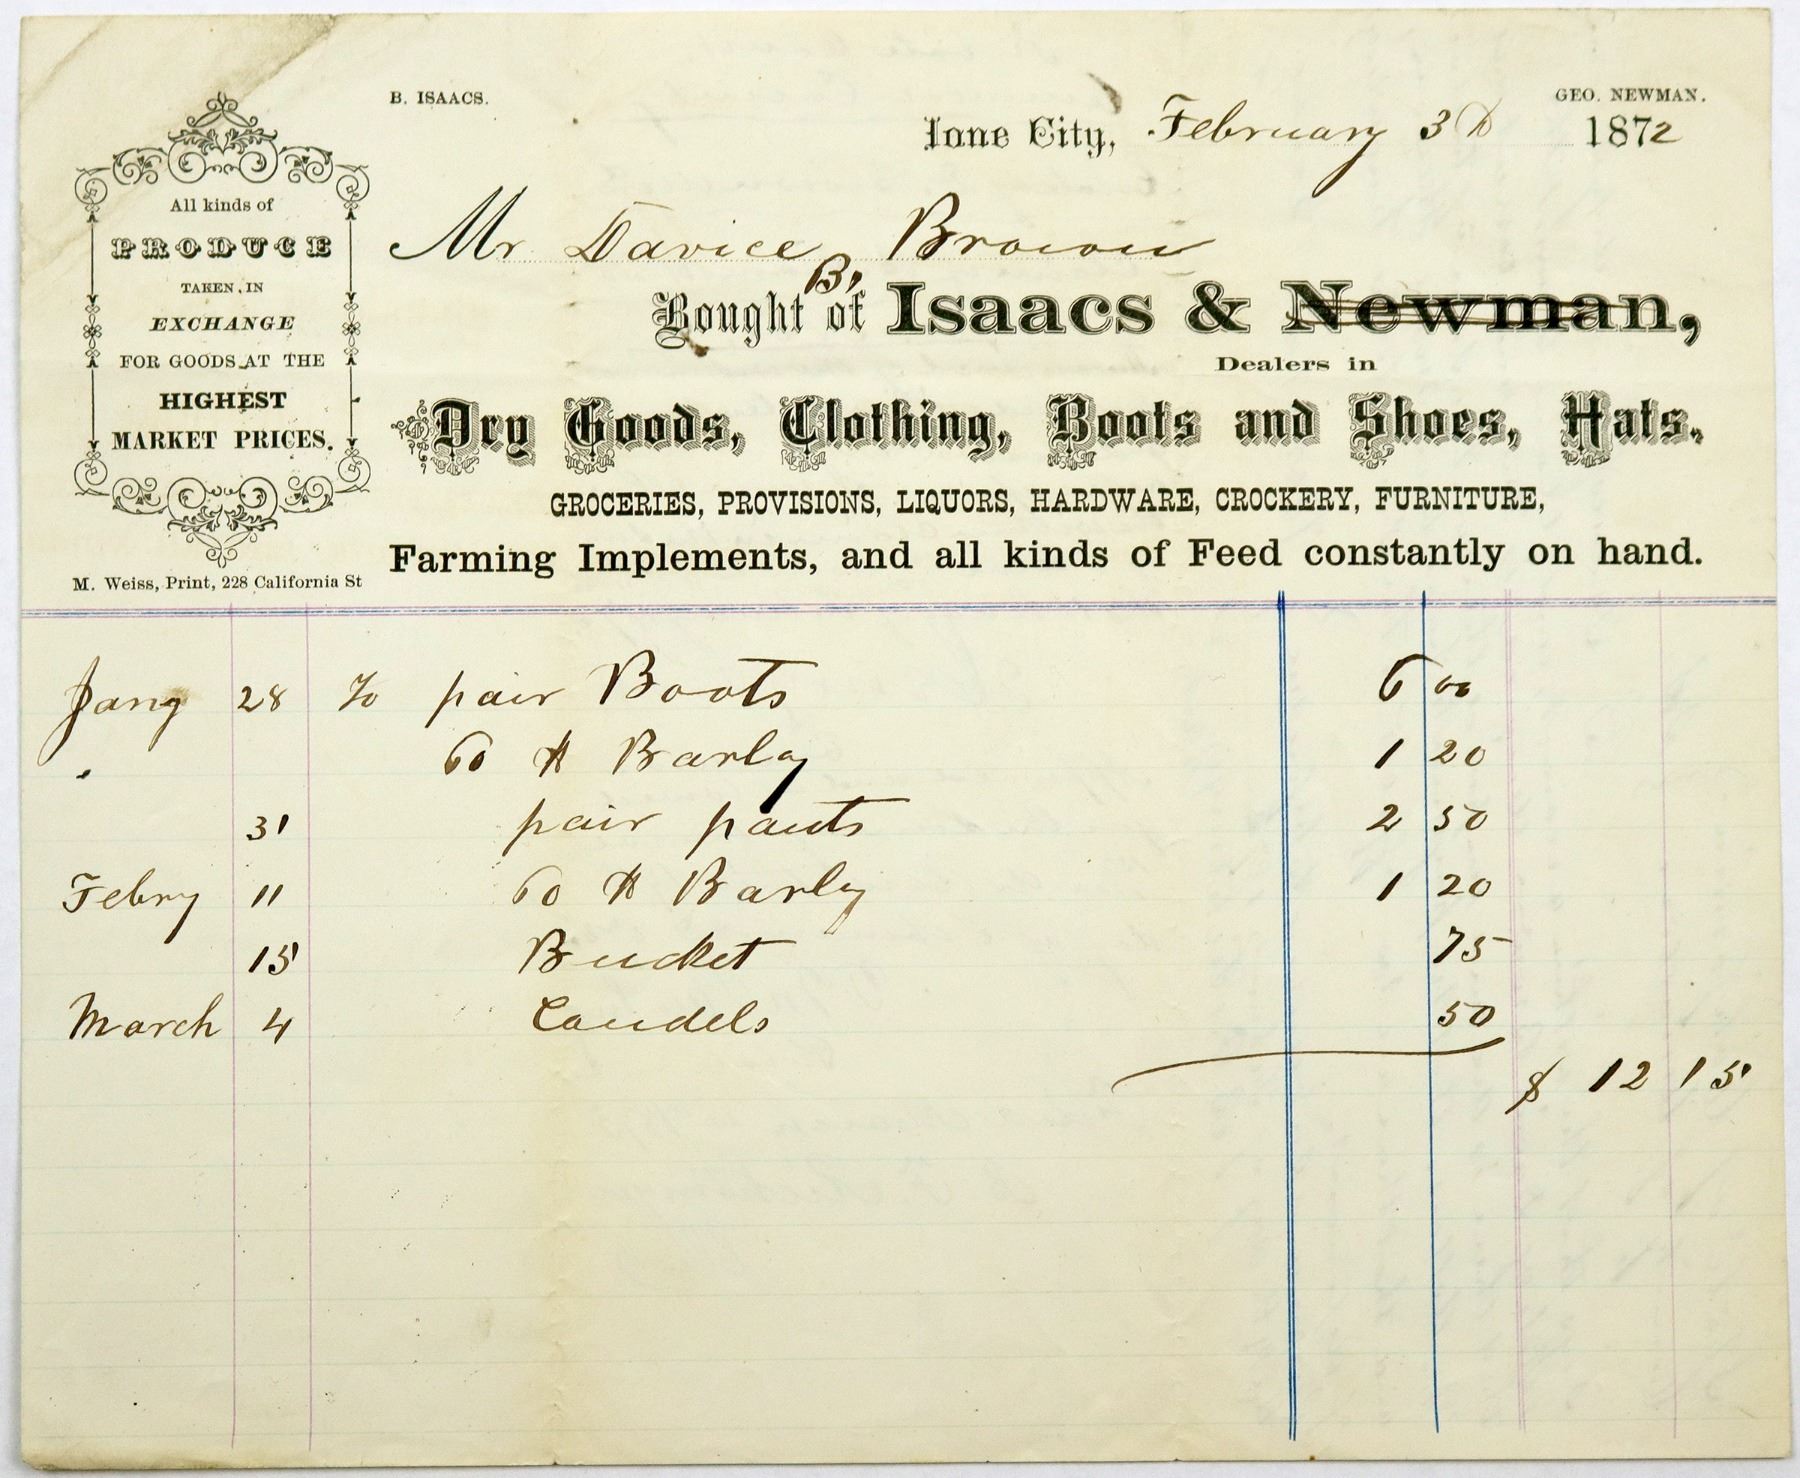 B. ISAACS.
GEO. NEWMAN.
Ione City, February 3d 1872
All kinds of
PRODUCE
TAKEN IN
EXCHANGE
FOR GOODS AT THE
HIGHEST
MARKET PRICES.
M. Weiss, Print, 228 California St
Mr Davice Brown
Bought of B. Isaacs & Newman,
Dealers in
Dry Goods, Clothing, Boots and Shoes, Hats.
GROCERIES, PROVISIONS, LIQUORS, HARDWARE, CROCKERY, FURNITURE,
Farming Implements, and all kinds of Feed constantly on hand.
Jany 28 To pair Boots 6 00
" 60 # Barley 1 20
31 pair pants 2 50
Febry 11 60 # Barley 1 20
15 Bucket 75
March 4 Candels 50
$ 12 15